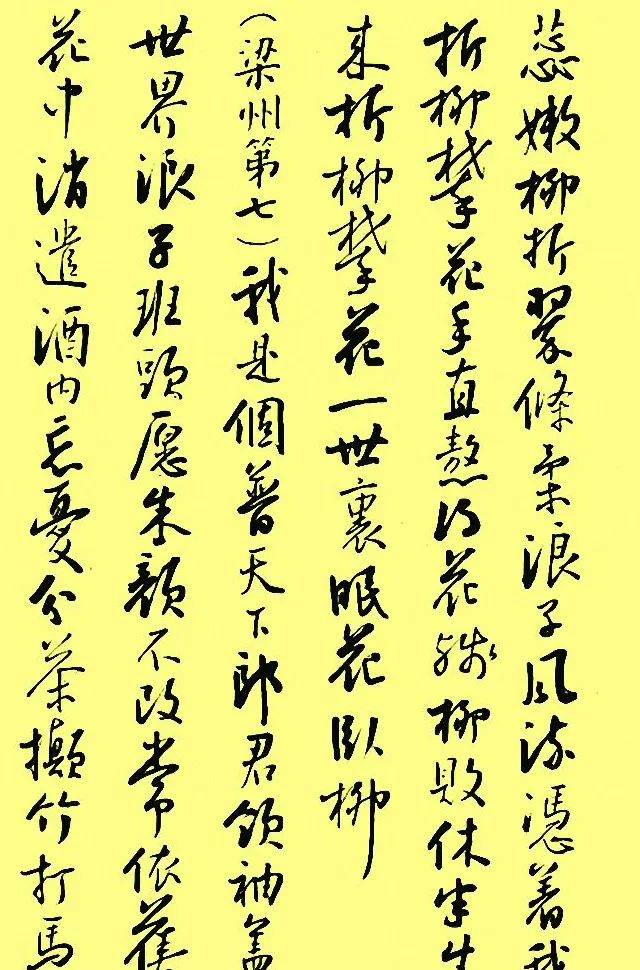 蕊嫩柳折翠條柔浪子風流憑着我
折柳攀花手直熬得花殘柳敗休半生
来折柳攀花一世裏眠花臥柳
(梁州第七)我是個普天下郎君領袖蓋
世界浪子班頭愿朱顏不改常依舊
花中消遣酒内忘憂分茶攧竹打馬